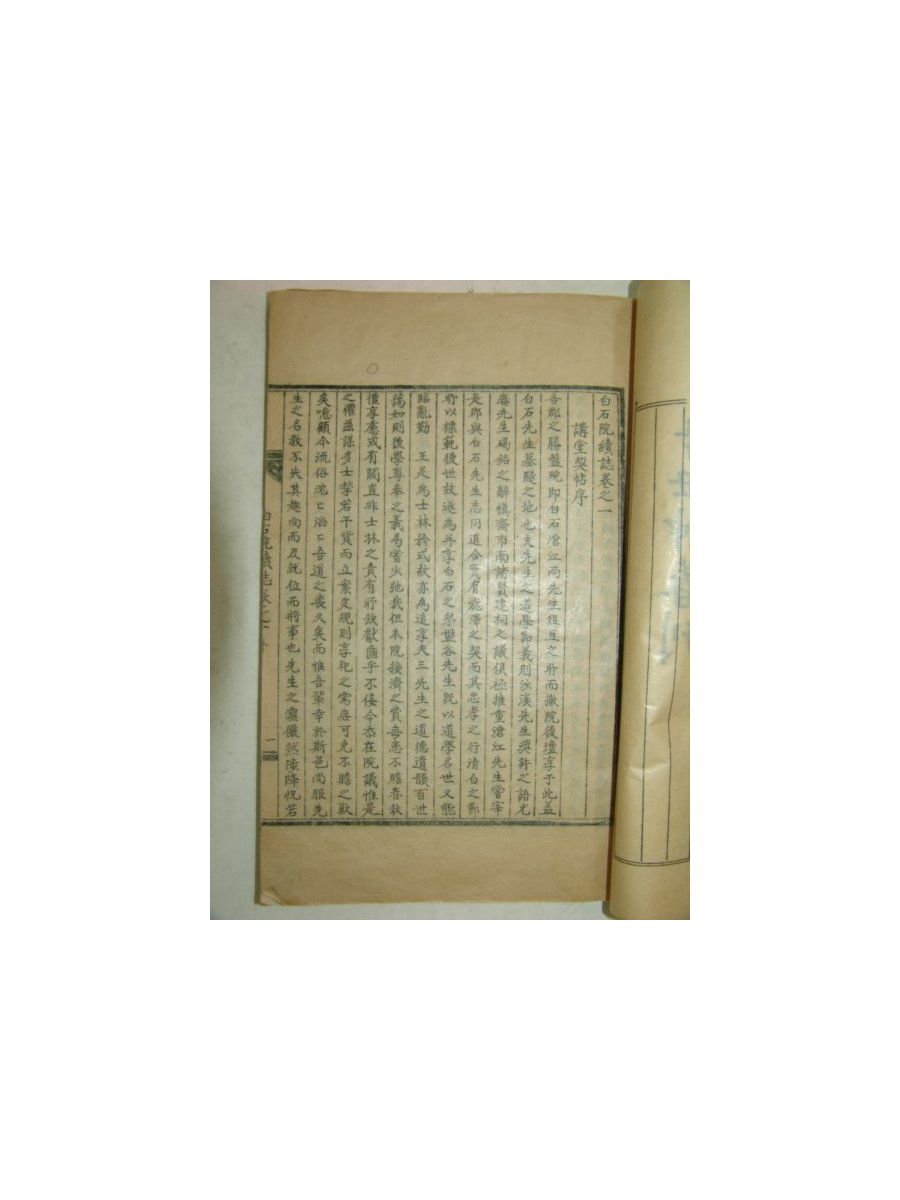 白石院續誌卷之一
講堂契帖序
吾郡之勝盤院即白石滄江兩先生俎豆之所而撤院後壇享于此蓋
白石先生墓隧之地也夫先生之道學節義則沙溪先生奬許之語尤
庵先生碣銘之辭愼齋市南諸賢建祠之議俱極推重滄江先生嘗宰
是郡與白石先生志同道合實有 之契而其忠孝之行淸白之節
所以標範後世故遂爲并享白石之 盤谷先生旣以道學名世又能
臨亂勤 王是爲士林矜式故亦爲追享夫三先生之道德遺韻百世
蕩如則後學尊奉之義曷嘗少弛哉但本院接濟之貲每患不贍春秋
禮享慮或有闕豈非士林之責有所欽歎 乎不佞今忝在院議惟是
之懼玆謀多士 若干貨而立案定規則享祀之需庶可免不贍之歎
矣噫顧今流俗沈〻滔〻吾道之喪久矣而惟吾輩幸於斯邑尚服先
生之名敎不失其趣向而及就位而將事也先生之靈儼然陟降怳若
白石院續誌卷之一
一